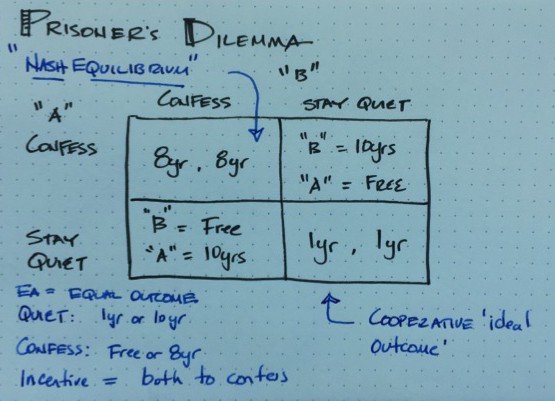 PRISONER'S DILEMMA
"NASH EQUILIBRIUM"
"B"
CONFESS STAY QUIET
"A"
CONFESS
8yr, 8yr
"B" = 10yrs
"A" = FREE
STAY QUIET
"B" = Free
"A" = 10yrs
1yr, 1yr
EA = EQUAL OUTCOME
QUIET: 1yr or 10yr
CONFESS: Free or 8yr
Incentive = both to confess
COOPERATIVE 'ideal
OUTCOME'